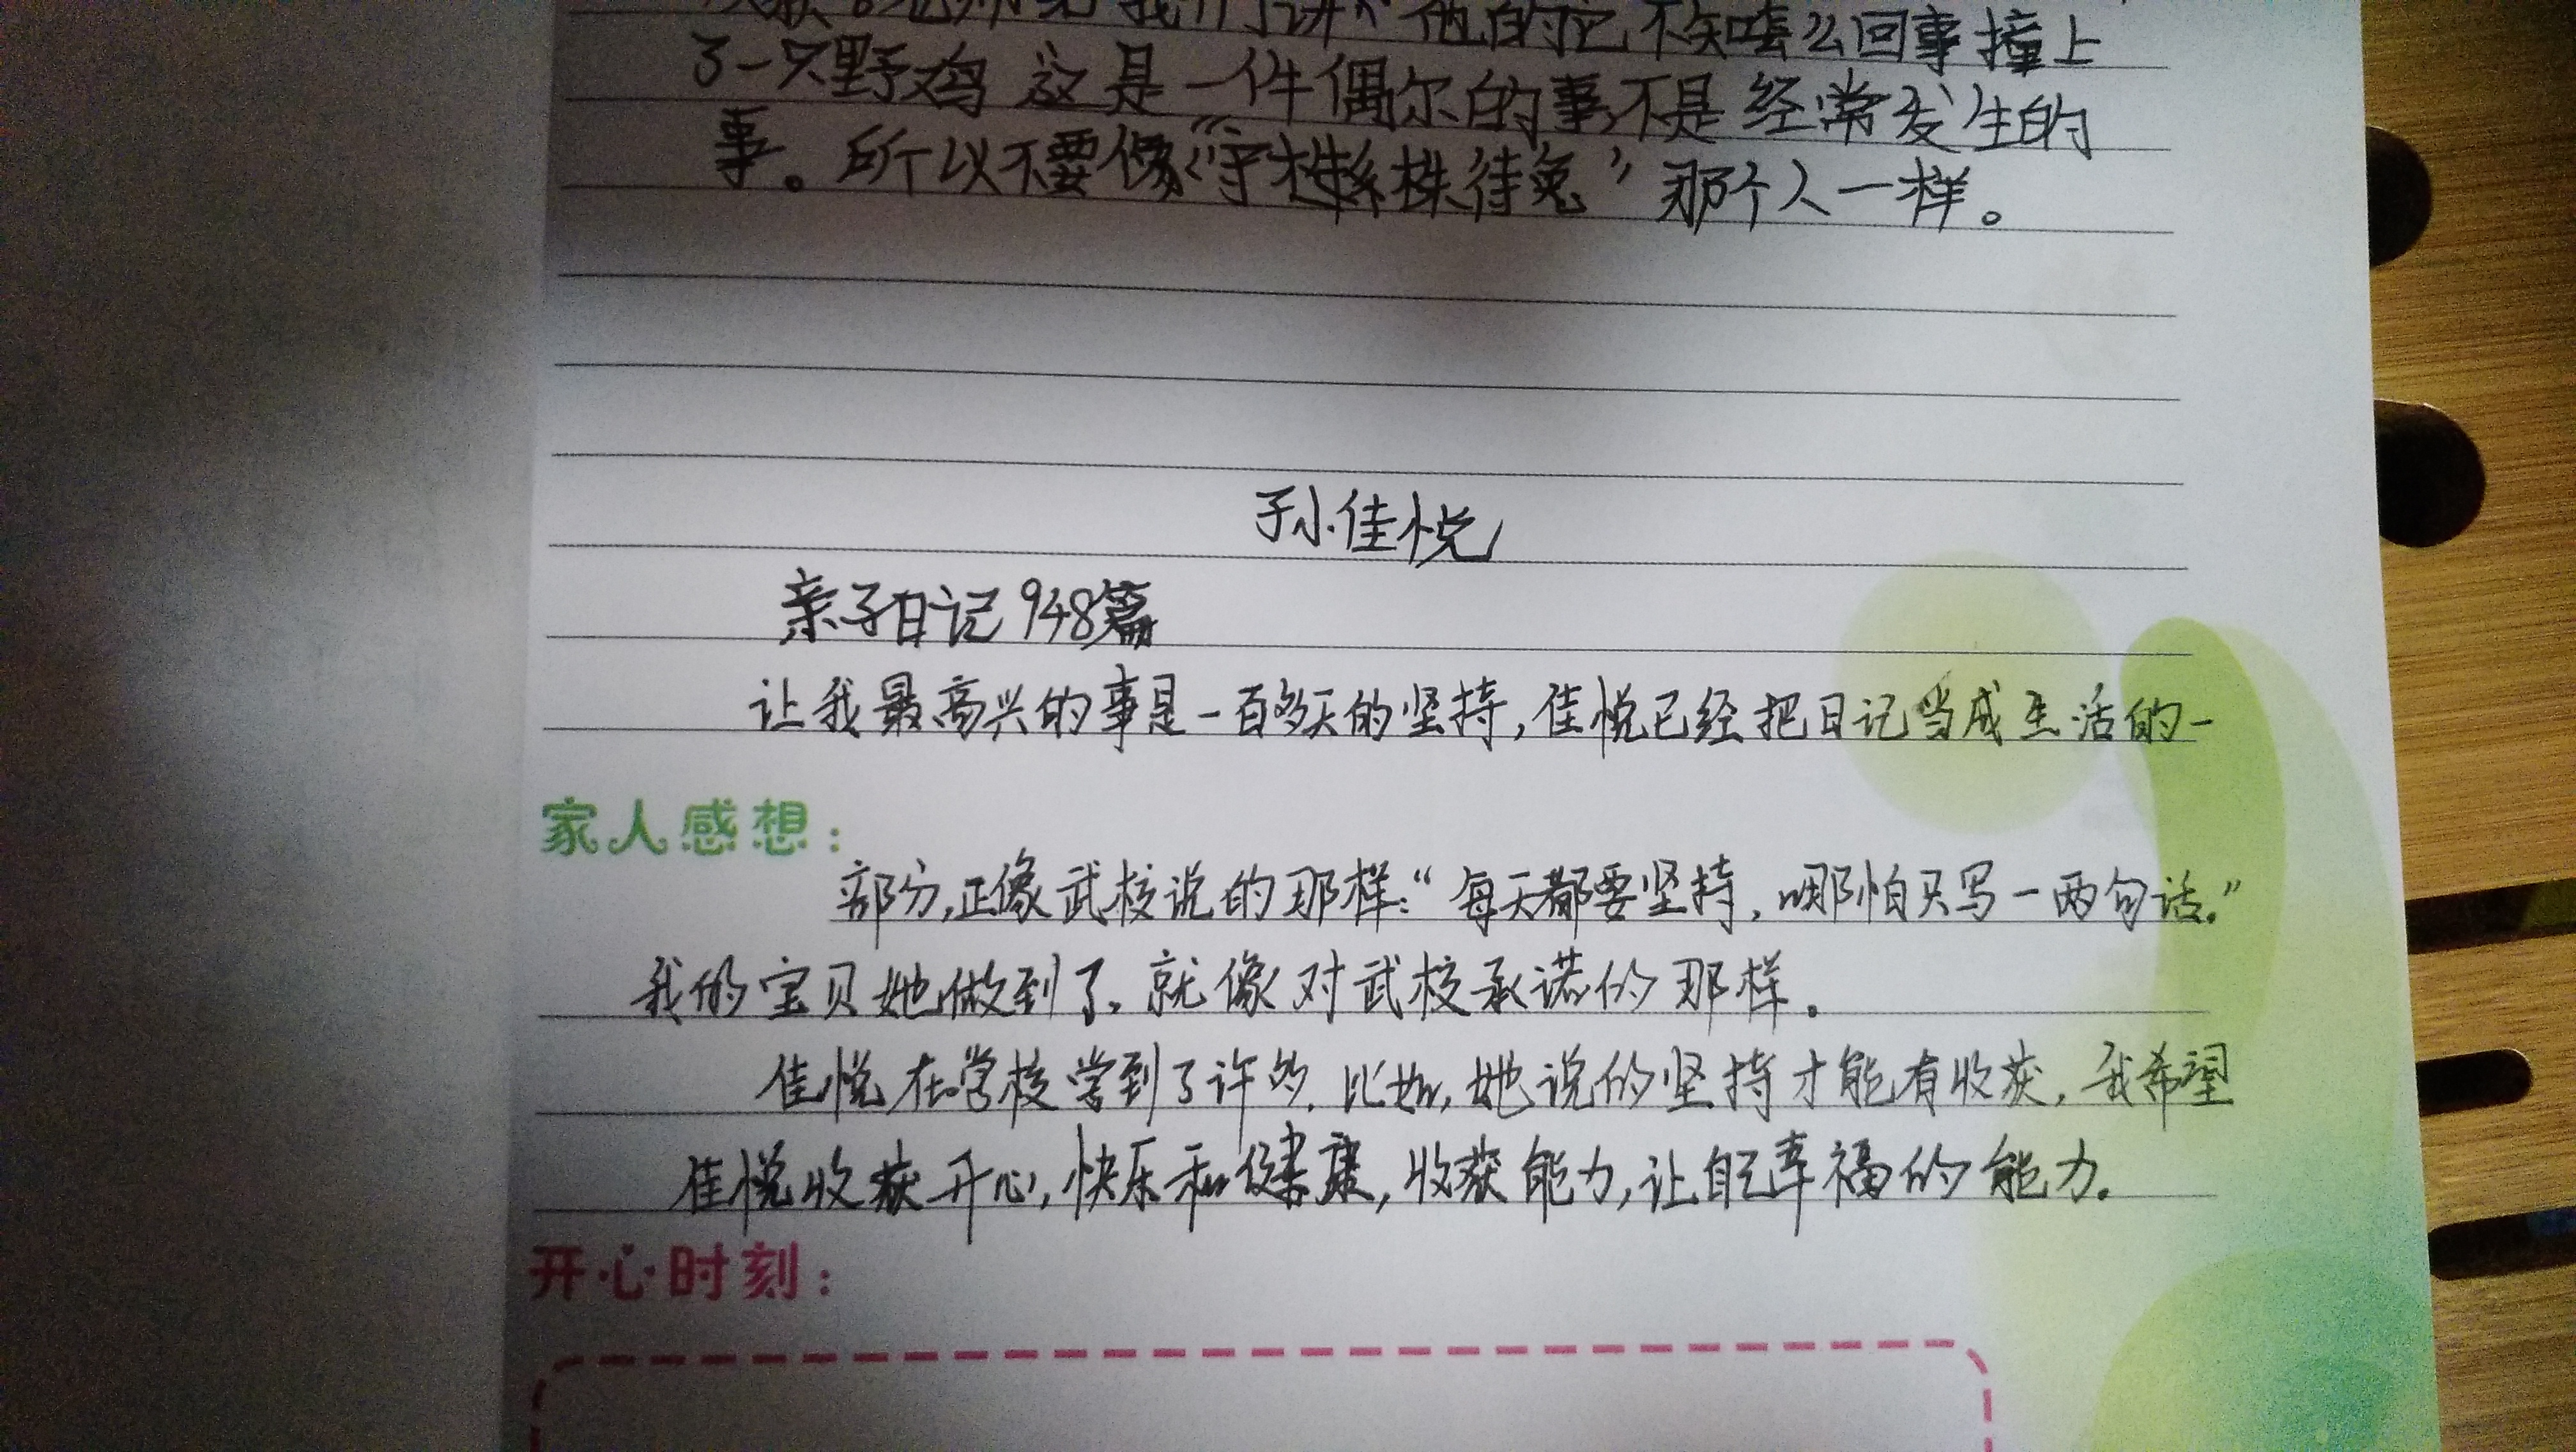 我们讲 他的 不知 么回事撞上
了一只野鸡 这是一件偶尔的事,不是经常发生的
事。所以不要像“守 株待兔”那个人一样。
孙佳悦
亲子日记948篇
让我最高兴的事是一百多天的坚持,佳悦已经把日记当成生活的一
家人感想:
部分,正像武校说的那样:“每天都要坚持,哪怕只写一两句话.”
我的宝贝她做到了.就像对武校承诺的那样.
佳悦在学校学到了许多.比如,她说的坚持才能有收获,我希望
佳悦收获开心,快乐和健康,收获能力,让自己幸福的能力.
开心时刻: